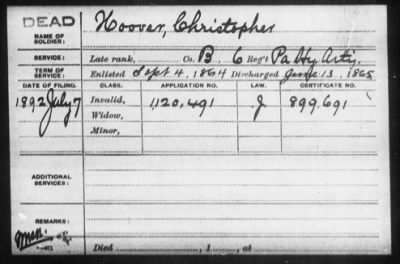 DEAD
NAME OF SOLDIER: Hoover, Christopher
SERVICE: Late rank, Co. B. 6 Reg't Pa Hy Arty.
TERM OF SERVICE: Enlisted Sept 4, 1864 Discharged June 13, 1865
DATE OF FILING. CLASS. APPLICATION NO. LAW. CERTIFICATE NO.
1892 July 7 Invalid, 1,120,491 J 899,691
Widow,
Minor,
ADDITIONAL SERVICES:
REMARKS:
Died , 1 , at